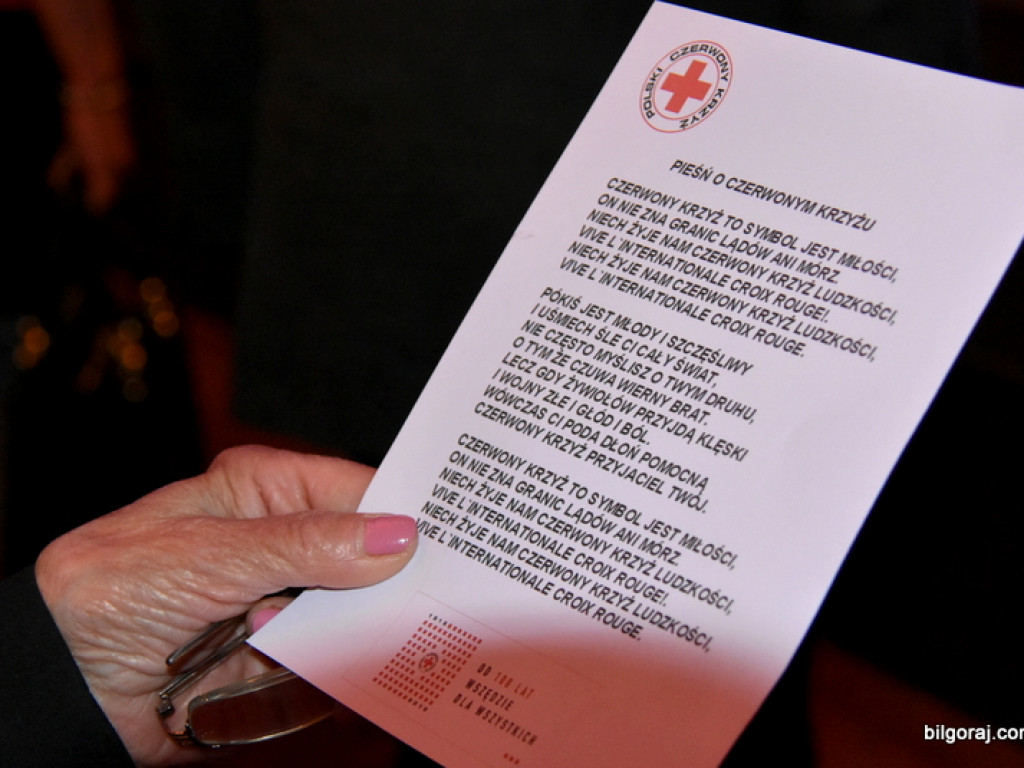 POLSKI CZERWONY KRZYŻ
PIEŚŃ O CZERWONYM KRZYŻU
CZERWONY KRZYŻ TO SYMBOL JEST MIŁOŚCI,
ON NIE ZNA GRANIC LĄDÓW ANI MÓRZ.
NIECH ŻYJE NAM CZERWONY KRZYŻ LUDZKOŚCI,
VIVE L'INTERNATIONALE CROIX ROUGE!.
NIECH ŻYJE NAM CZERWONY KRZYŻ LUDZKOŚCI,
VIVE L'INTERNATIONALE CROIX ROUGE.
PÓKIŚ JEST MŁODY I SZCZĘŚLIWY
I UŚMIECH ŚLE CI CAŁY ŚWIAT,
NIE CZĘSTO MYŚLISZ O TWYM DRUHU,
O TYM ŻE CZUWA WIERNY BRAT.
LECZ GDY ŻYWIOŁÓW PRZYJDĄ KLĘSKI
I WOJNY ZŁE I GŁÓD I BÓL.
WÓWCZAS CI PODA DŁOŃ POMOCNĄ
CZERWONY KRZYŻ PRZYJACIEL TWÓJ.
CZERWONY KRZYŻ TO SYMBOL JEST MIŁOŚCI,
ON NIE ZNA GRANIC LĄDÓW ANI MÓRZ.
NIECH ŻYJE NAM CZERWONY KRZYŻ LUDZKOŚCI,
VIVE L'INTERNATIONALE CROIX ROUGE!.
NIECH ŻYJE NAM CZERWONY KRZYŻ LUDZKOŚCI,
VIVE L'INTERNATIONALE CROIX ROUGE.
OD 100 LAT
WSZĘDZIE
DLA WSZYSTKICH
bilgoraj.com